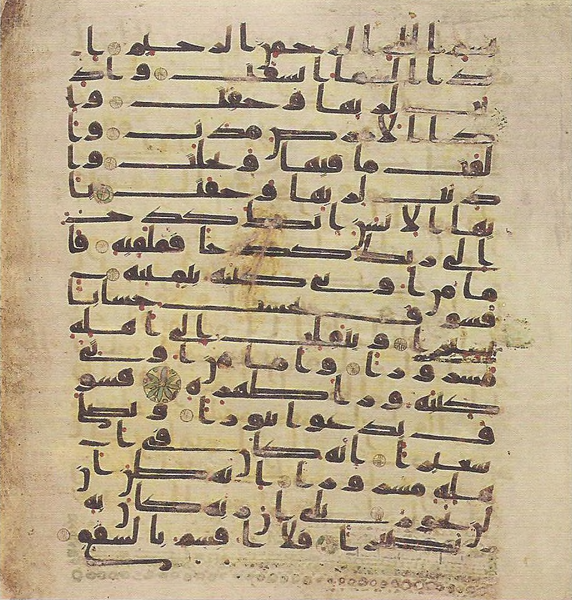 بسم الله الرحمن الرحيم ا
ذا السما انشقت واذ
نت لربها وحقت وا
ذا الارض مدت وا
لقت ما فيها وتخلت وا
ذنت لربها وحقت يا
يها الانسن انك كادح
الى ربك كدحا فملقيه فا
ما من اوتي كتبه بيمينه
فسوف يحسب حسابا
يسيرا وينقلب الى اهله
مسرورا واما من اوتي
كتبه ورا ظهره فسو
ف يدعوا ثبورا ويصلى
سعيرا انه كان في ا
هله مسرورا انه ظن ا
ن لن يحور بلى ان ربه كان به
بصيرا فلا اقسم بالشفق